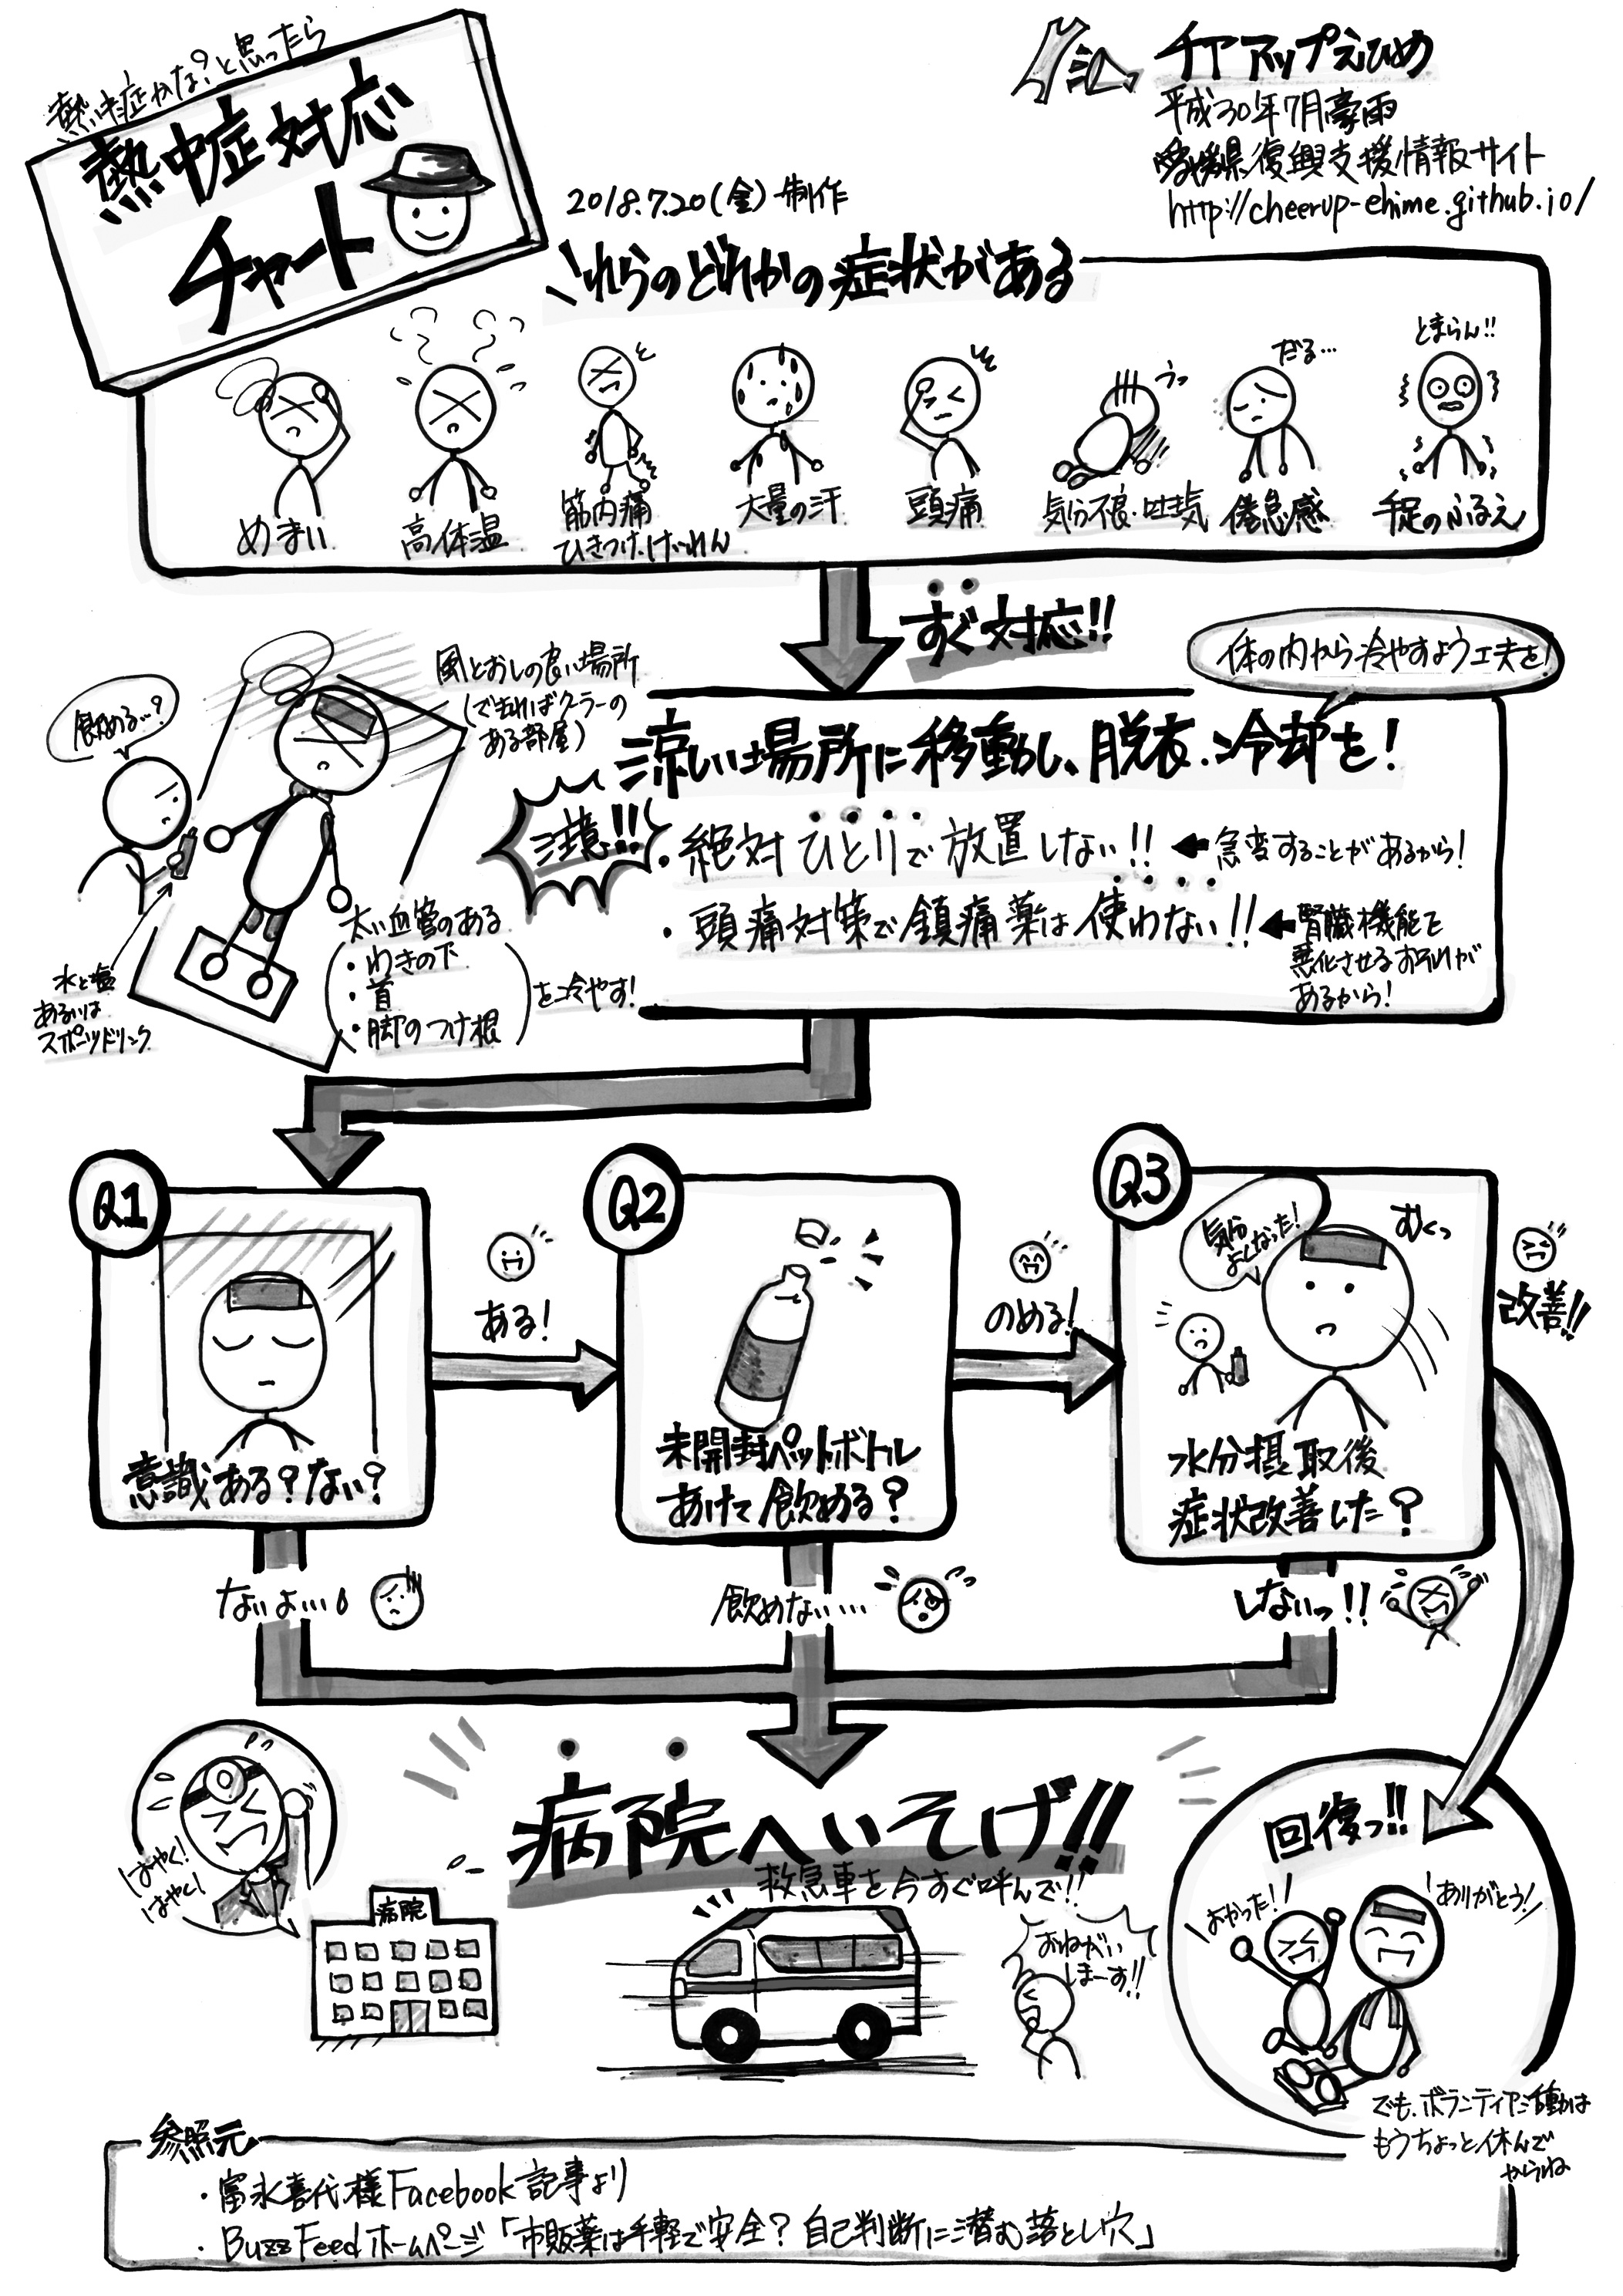 熱中症かな?と思ったら
熱中症対応
チャート
チアアップえひめ
平成30年7月豪雨
愛媛県復興支援情報サイト
http://cheerup-ehime.github.io/
2018.7.20(金)制作
これらのどれかの症状がある
とまらん!!
だる…
うっ
めまい
高体温
筋肉痛
ひきつけ・けいれん
大量の汗
頭痛
気分不良・吐き気
倦怠感
手足のふるえ
すぐ対応!!
体の内から冷やすよう工夫を!
飲める…?
風とおしの良い場所
(できればクーラーの
ある部屋)
涼しい場所に移動し、脱衣・冷却を!
注意!!
・絶対ひとりで放置しない!!
急変することがあるから!
・頭痛対策で鎮痛薬は使わない!!
腎臓機能を
悪化させるおそれが
あるから!
太い血管のある
・わきの下
・首
・脚のつけ根
を冷やす!
水と塩
あるいは
スポーツドリンク
Q1
意識ある?ない?
ある!
Q2
未開封ペットボトル
あけて飲める?
のめる!
Q3
気分
よくなった!
むくっ
水分摂取後
症状改善した?
改善!!
ないよ…
飲めない…
しないっ!!
病院へいそげ!!
救急車を今すぐ呼んで!!
はやく!
はやく!
病院
おねがい
しまーす!!
回復っ!!
よかった!
ありがとう!
でも、ボランティア活動は
もうちょっと休んで
からね
参照元
・富永喜代様Facebook記事より
・BuzzFeedホームページ「市販薬は手軽で安全?自己判断に潜む落とし穴」